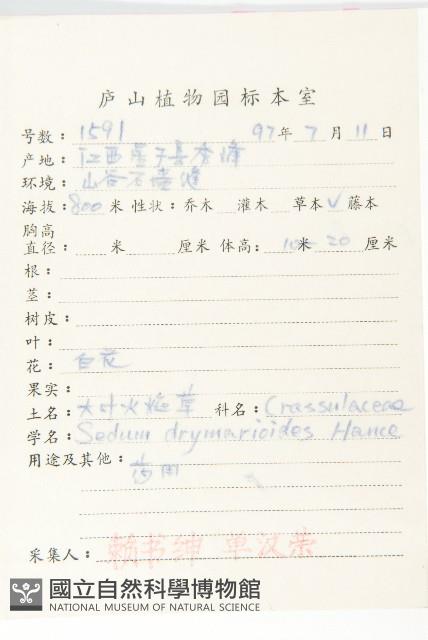 庐山植物园标本室
号数：1591 97年7月11日
产地：江西星子县秀峰
环境：山谷石缝
海拔：800米 性状：乔木 灌木 草本✓藤本
胸高
直径： 米 厘米 体高： 10米20 厘米
根：
茎：
树皮：
叶：
花：白花
果实：
土名：大叶火焰草 科名：Crassulaceae
学名：Sedum drymarioides Hance
用途及其他：药用
采集人：赖书绅 单汉荣
國立自然科學博物館
NATIONAL MUSEUM OF NATURAL SCIENCE